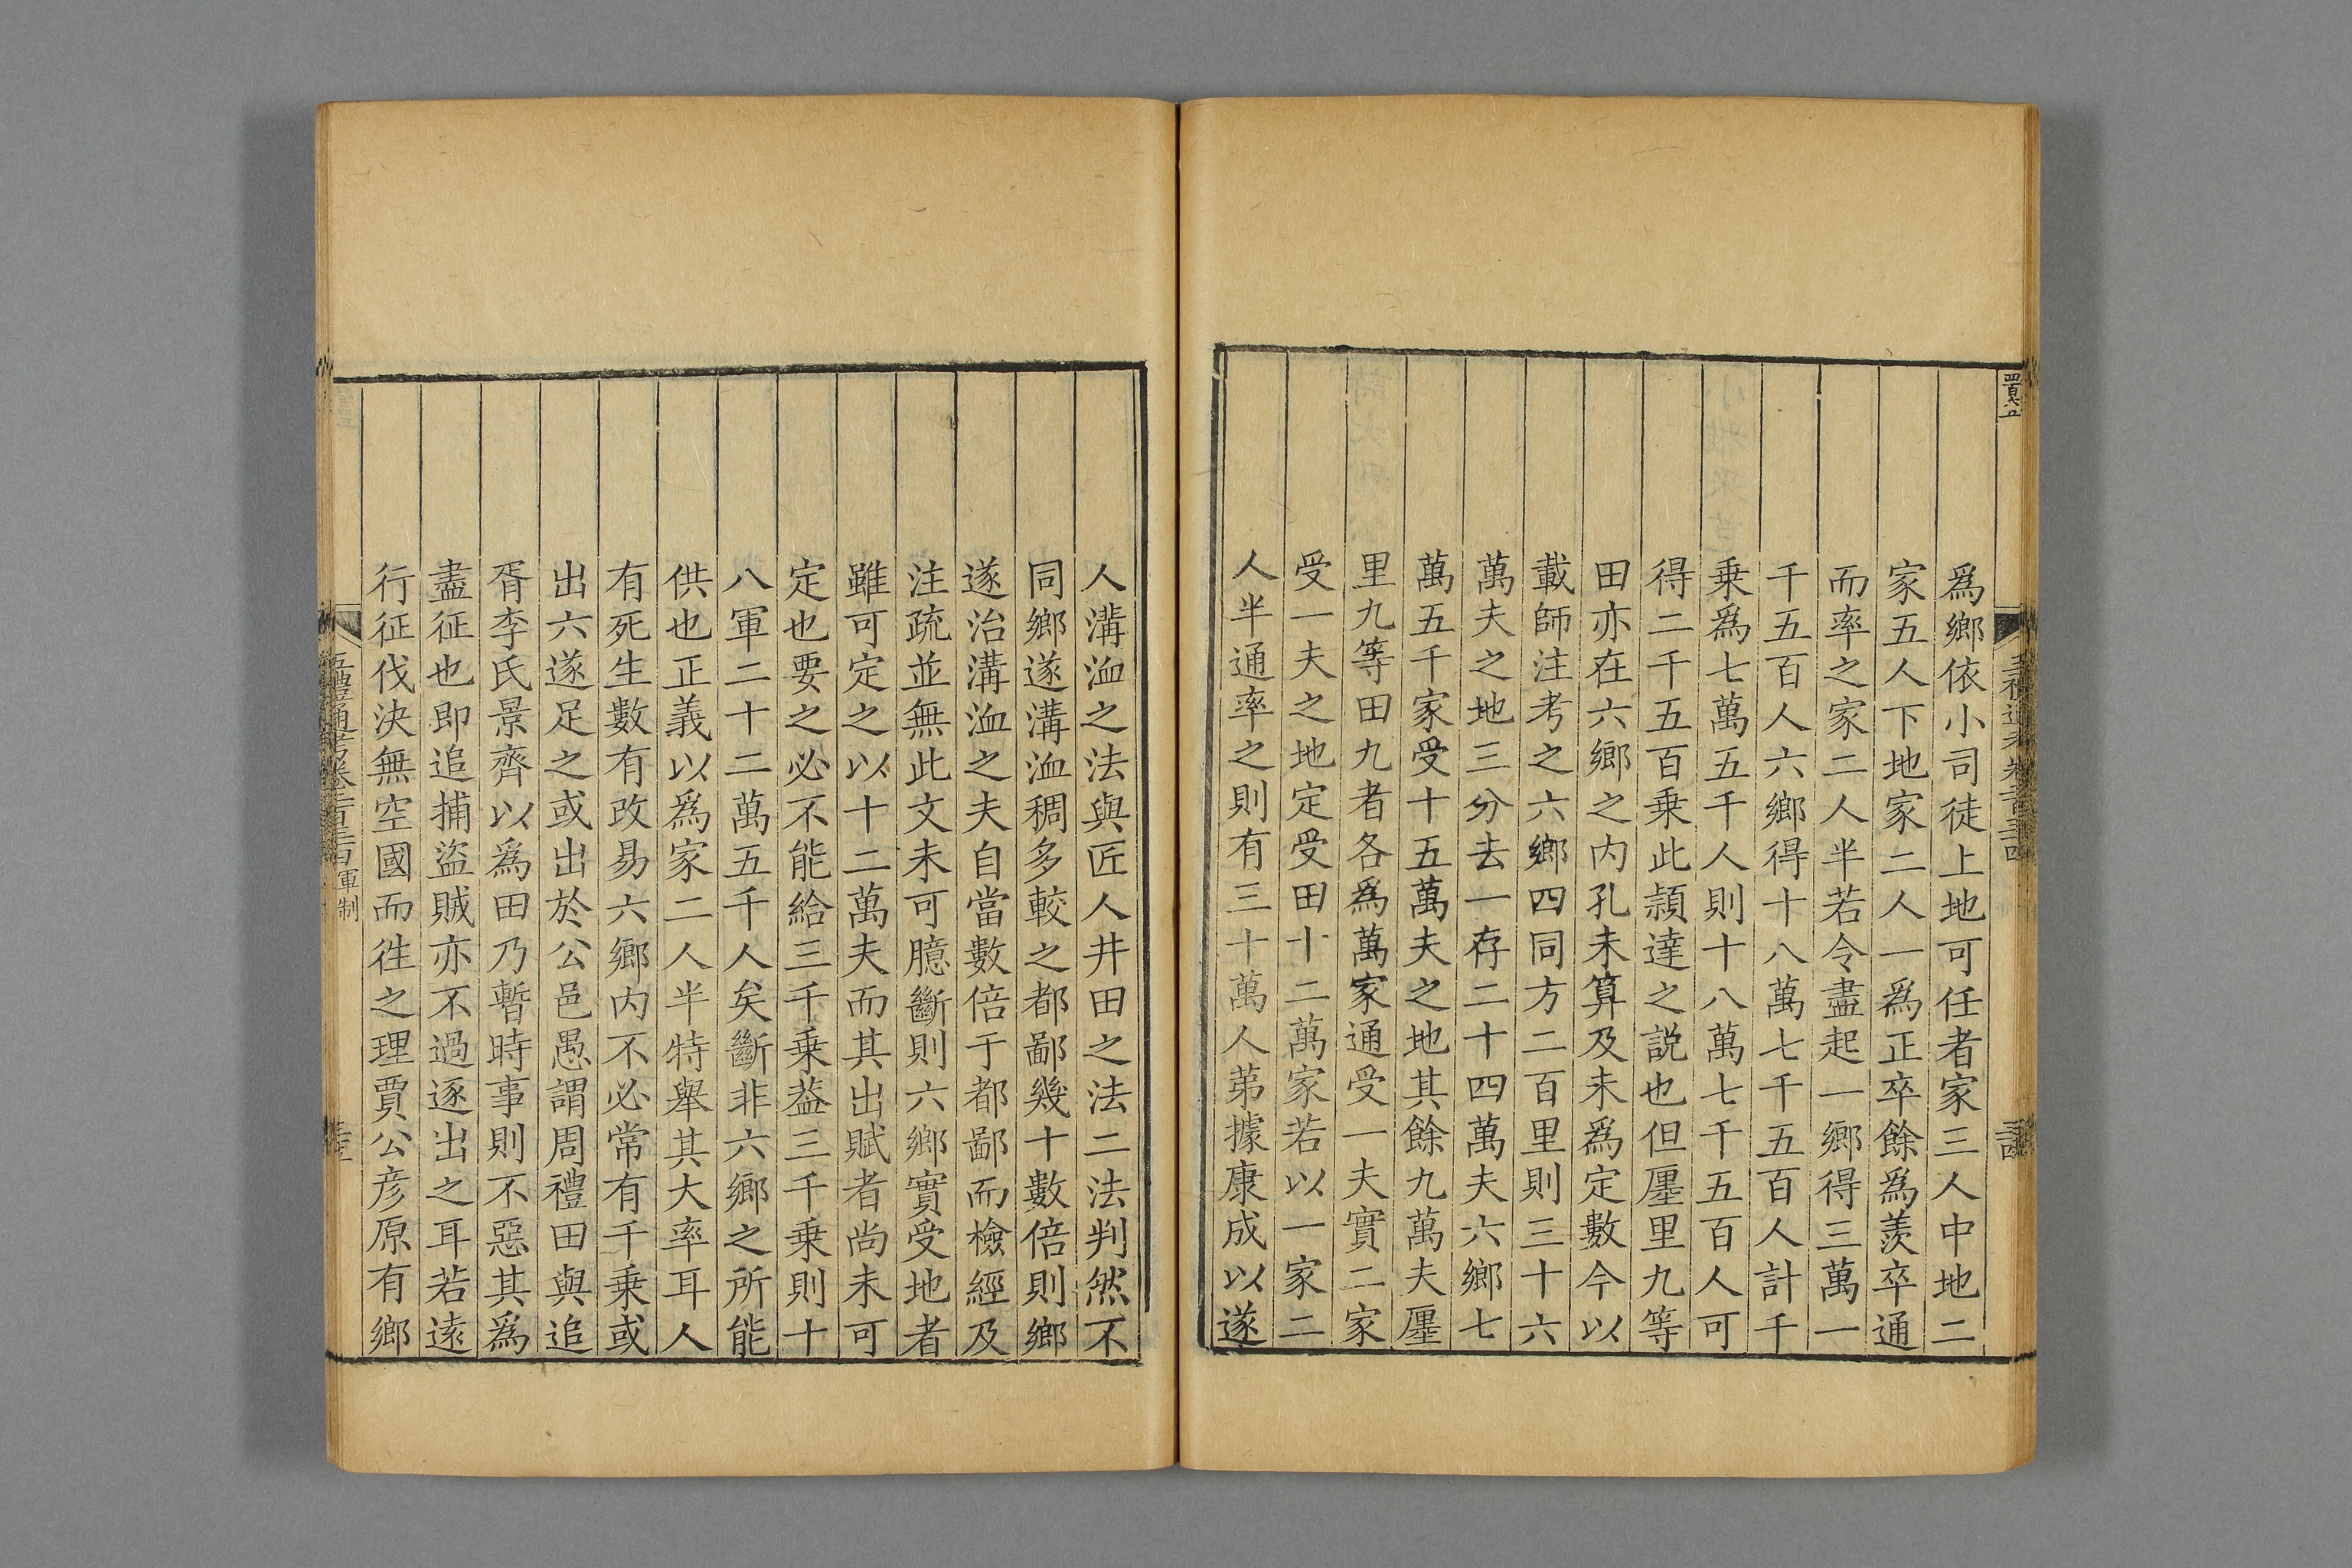 爲鄉依小司徒上地可任者家三人中地二
家五人下地家二人一爲正卒餘爲羨卒通
而率之家二人半若令盡起一鄉得三萬一
千五百人六鄉得十八萬七千五百人計千
乗爲七萬五千人則十八萬七千五百人可
得二千五百乗此頴達之説也但廛里九等
田亦在六鄉之内孔未算及未爲定數今以
載師注考之六鄉四同方二百里則三十六
萬夫之地三分去一存二十四萬夫六鄉七
萬五千家受十五萬夫之地其餘九萬夫廛
里九等田九者各爲萬家通受一夫實二家
受一夫之地定受田十二萬家若以一家二
人半通率之則有三十萬人苐據康成以遂
人溝洫之法與匠人井田之法二法判然不
同鄉遂溝洫稠多較之都鄙幾十數倍則鄉
遂治溝洫之夫自當數倍于都鄙而檢經及
注疏並無此文未可臆斷則六鄉實受地者
雖可定之以十二萬夫而其出賦者尚未可
定也要之必不能給三千乗葢三千乗則十
八軍二十二萬五千人矣斷非六鄉之所能
供也正義以爲家二人半特舉其大率耳人
有死生數有改易六鄉内不必常有千乗或
出六遂足之或出於公邑愚謂周禮田與追
胥李氏景齊以爲田乃暫時事則不惡其爲
盡征也即追捕盜賊亦不過逐出之耳若遠
行征伐決無空國而徃之理賈公彦原有鄉
五禮通考卷二百三十四 軍制